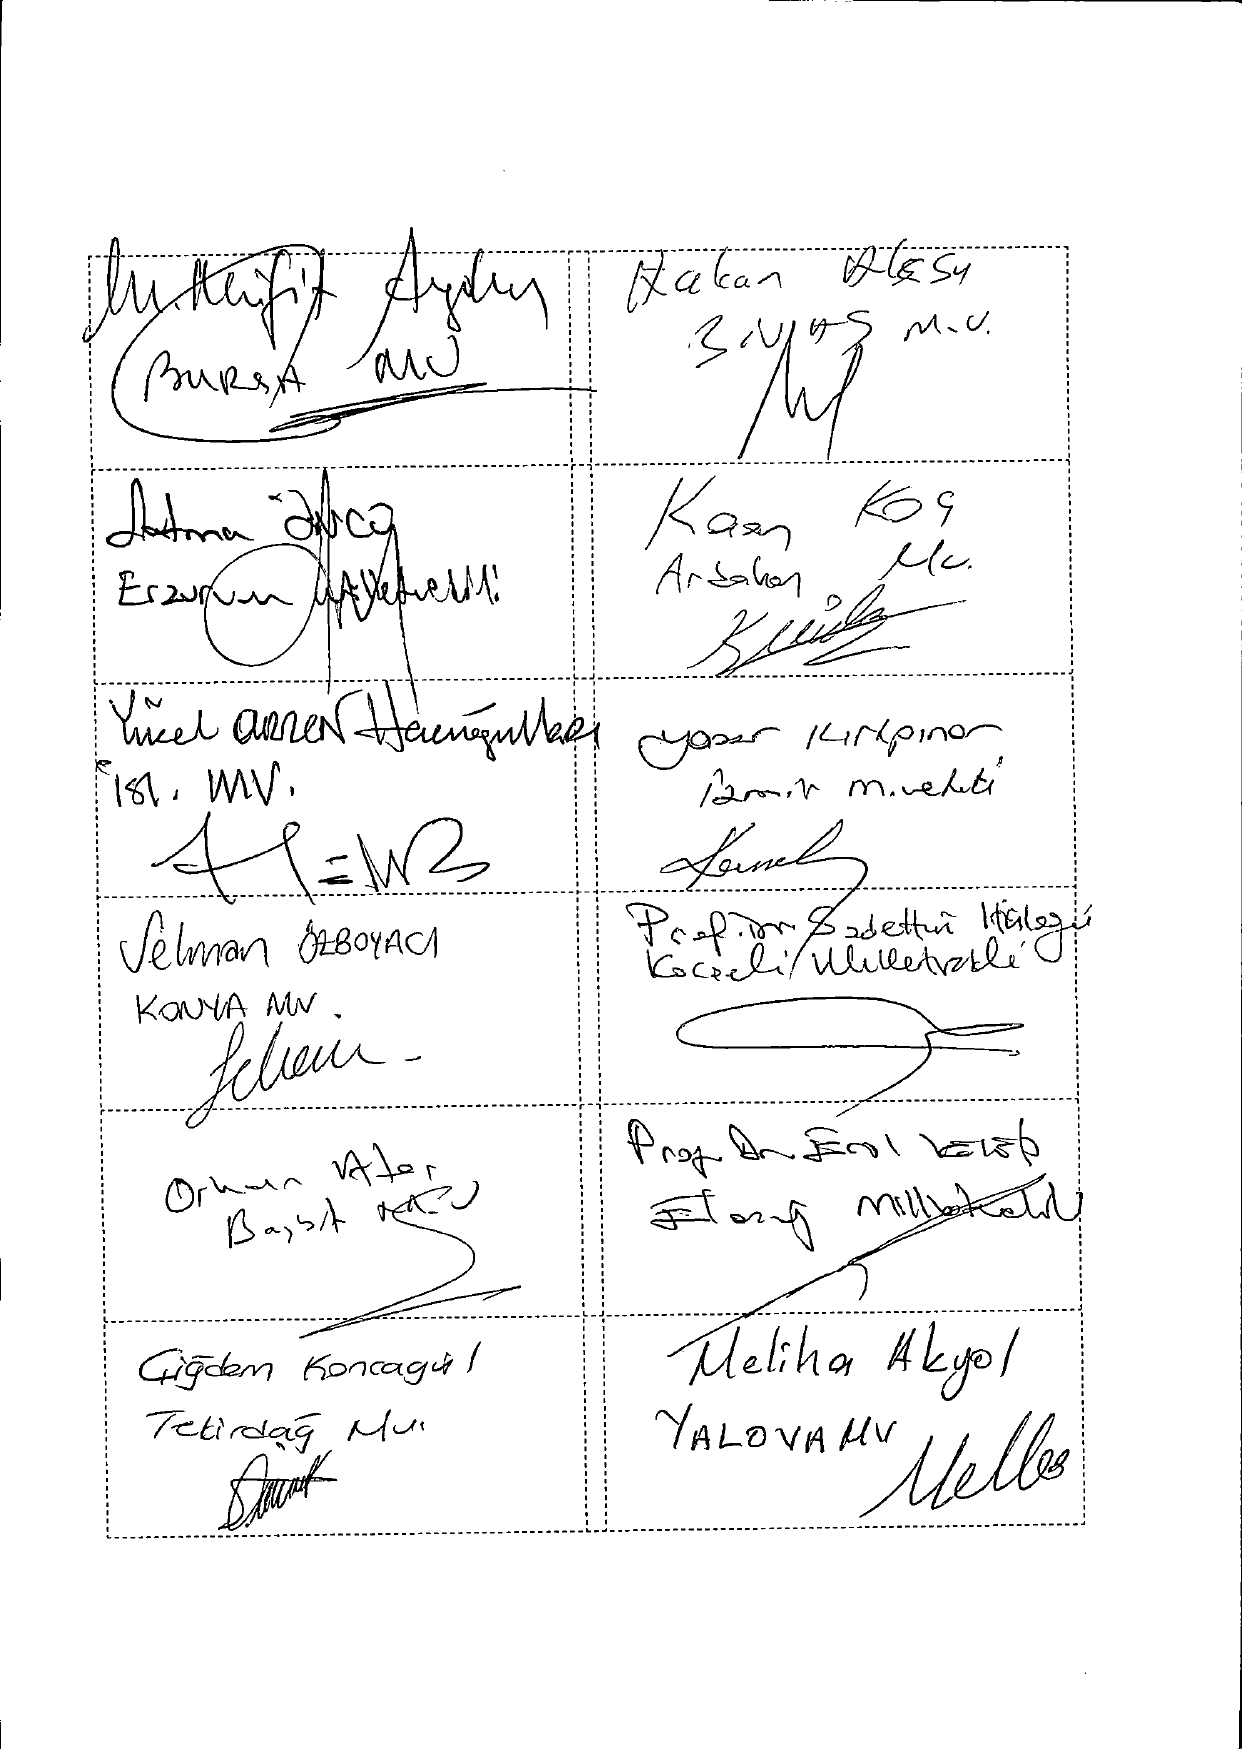 Müfit Aydın
BURSA MV
Hakan Aksu
SİVAS M.V.
Fatma Öncü
Erzurum Milletvekili
Kaan KOÇ
Ardahan Mv.
Yücel ARZEN Hacıoğulları
İst. MV.
Yaşar Kırkpınar
İzmir M.vekili
Selman ÖZBOYACI
KONYA MV.
Prof. Dr. Sadettin Hülagü
Kocaeli Milletvekili
Orhan Ateş
Bayburt MV
Prof. Dr. Erol KELEŞ
Elazığ Milletvekili
Çiğdem Koncagül
Tekirdağ Mv.
Meliha Akyol
YALOVA MV